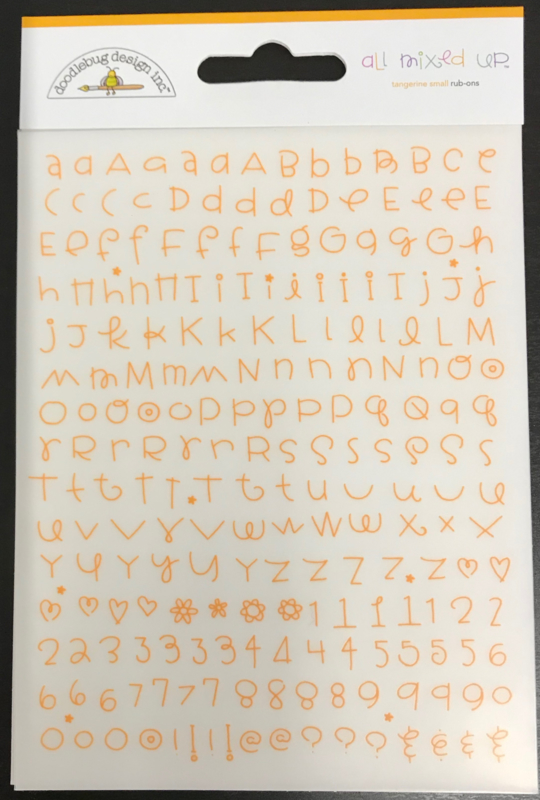 doodlebug design inc™
all mixed up™
tangerine small rub-ons
a a A a a a A B b b B B C e
C c C c D D d d D e E e e E
E e f f F f f F g G g g G h
h H h h H I i I i i i i i I j J j
j J k k K k K L l l l L M
m m M m m N n n n N n O o
O o O o o p p p P P q Q q q
r R r R r r R s S S s S s
T t t T T T t t u u u u u
u v v v v w w W w x x x
Y y Y y y Y z z z z z z
1 1 1 1 1 2 2
2 2 3 3 3 3 3 4 4 4 4 5 5 5 5 6
6 6 6 7 7 7 7 8 8 8 8 9 9 9 9 0
0 0 0 0 ! ! ! ! @ @ ? ? ? & & & &